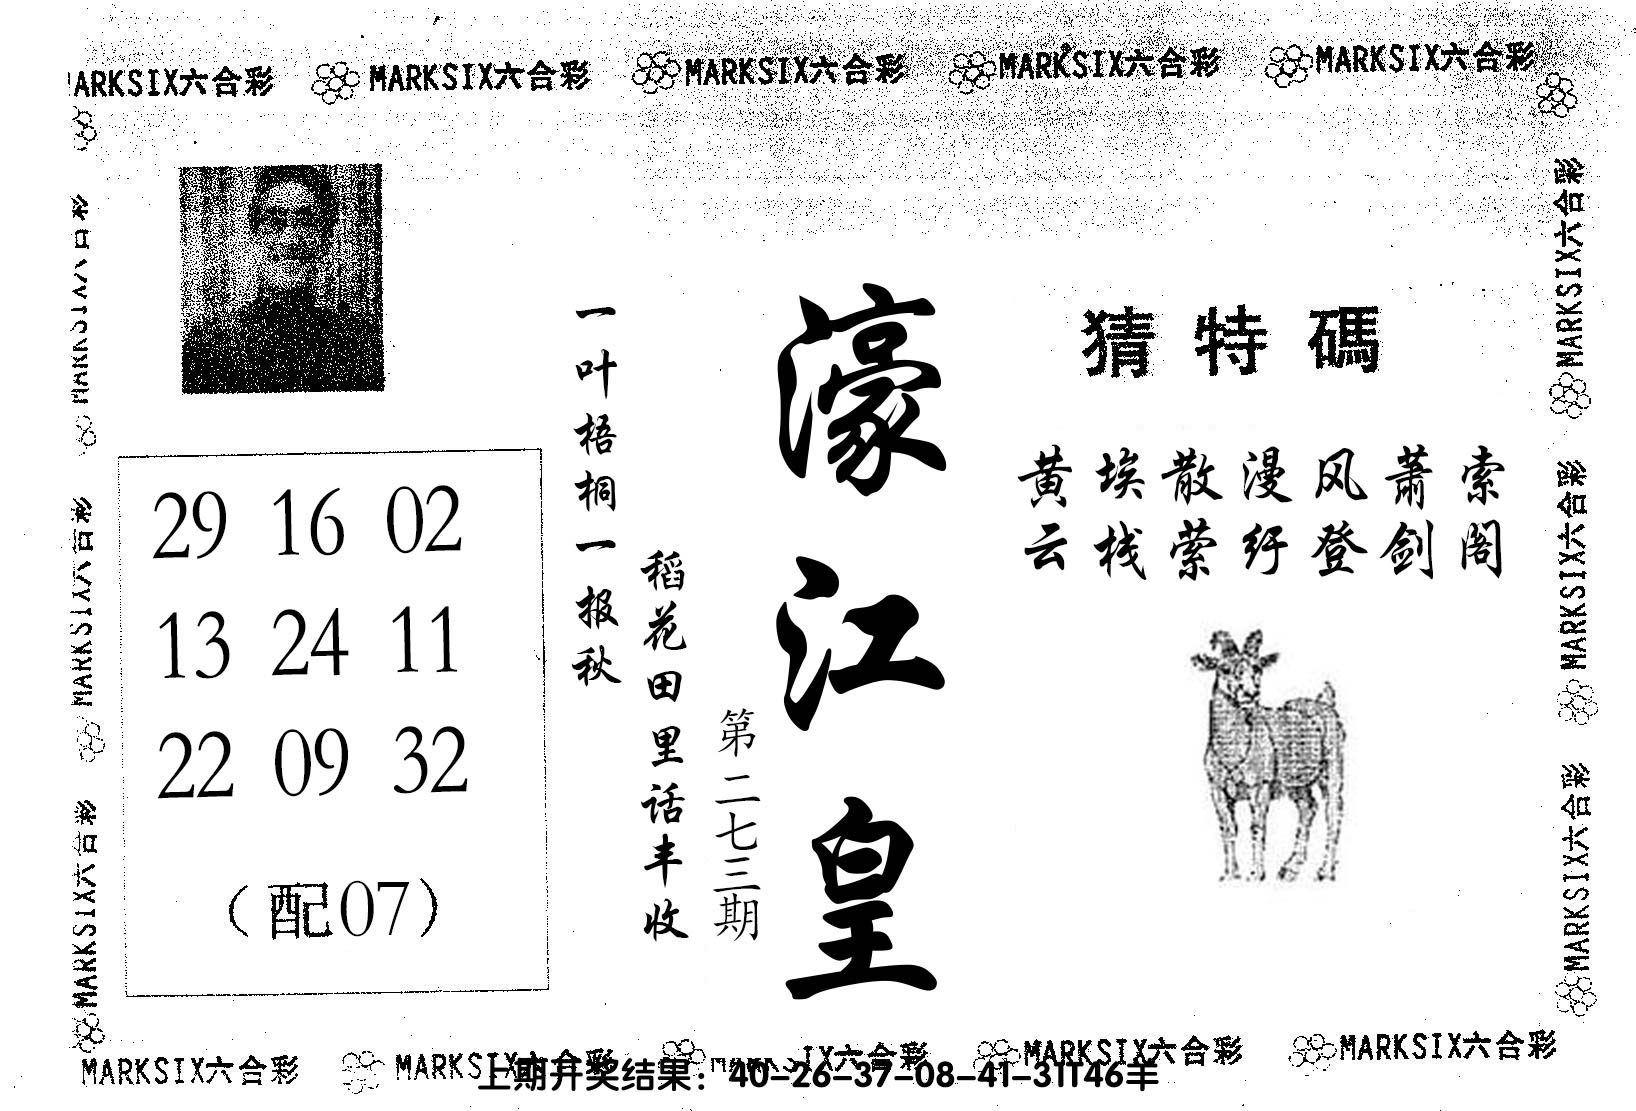 MARKSIX六合彩 MARKSIX六合彩 MARKSIX六合彩 MARKSIX六合彩 MARKSIX六合彩
猜特碼
黄埃散漫风萧索
云栈萦纡登剑阁
濠江皇
第二七三期
稻花田里话丰收
一叶梧桐一报秋
29 16 02
13 24 11
22 09 32
（配07）
MARKSIX六合彩
MARKSIX六合彩
MARKSIX六合彩
MARKSIX六合彩
MARKSIX六合彩
MARKSIX六合彩
MARKSIX六合彩 MARKSIX六合彩 MARKSIX六合彩 MARKSIX六合彩 MARKSIX六合彩
上期开奖结果：40-26-37-08-41-31T46羊